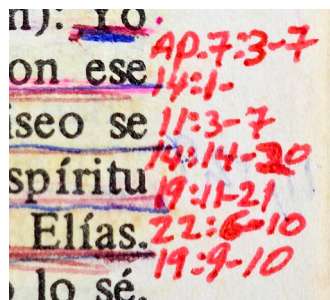 n): Yo
on ese
iseo se
spíritu
Elías.
lo sé.
AP.7:3-7
14:1-
11:3-7
14:14-20
19:11-21
22:6-10
19:9-10